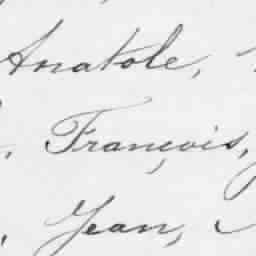 Anatole,
, François,
, Jean,